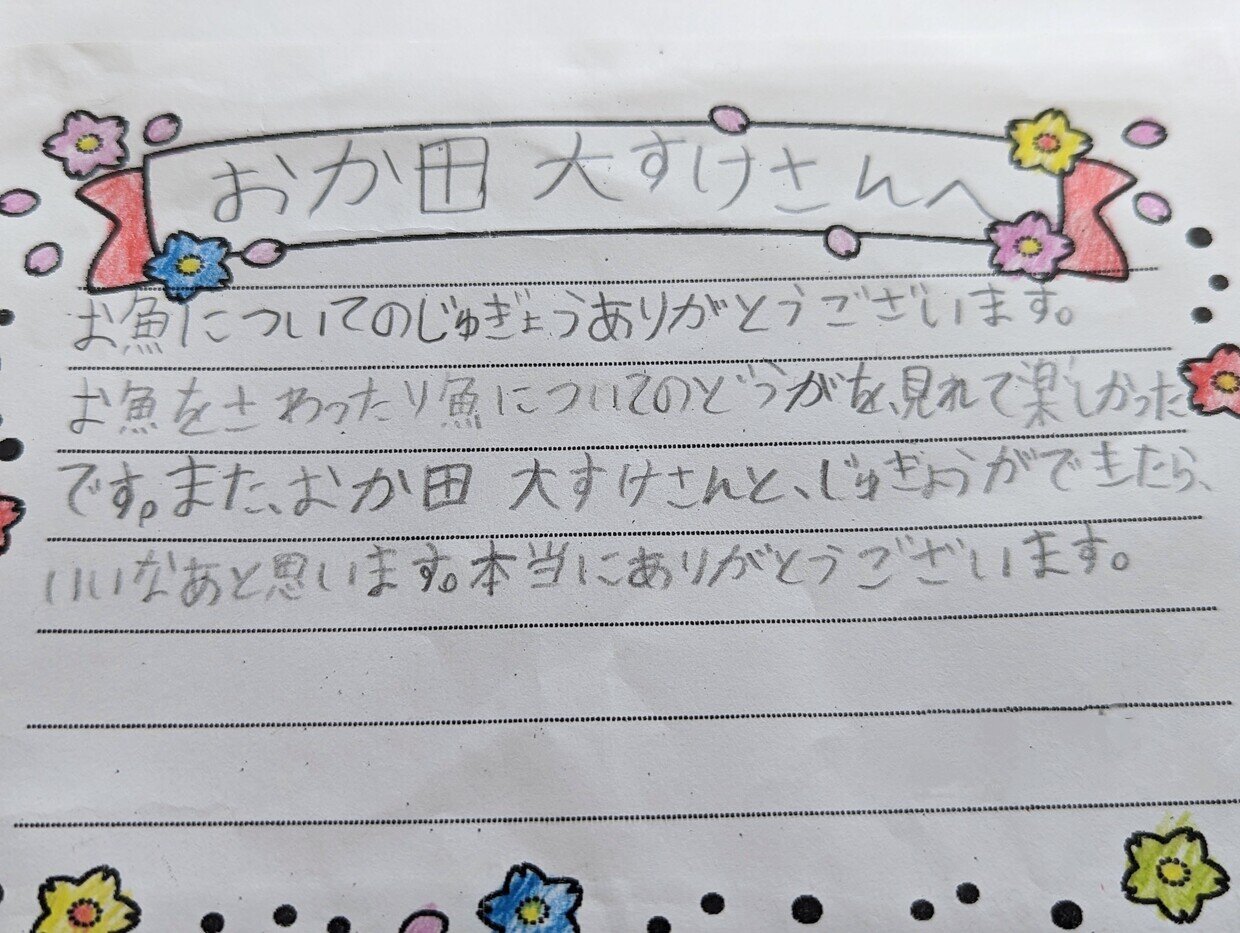 おか田 大すけさんへ
お魚についてのじゅぎょうありがとうございます。
お魚をさわったり魚についてのどうがを、見れて楽しかった
です。また、おか田 大すけさんと、じゅぎょうができたら、
いいなあと思います。本当にありがとうございます。